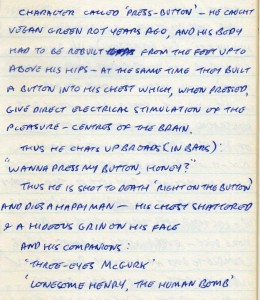 CHARACTER CALLED 'PRESS-BUTTON' - HE CAUGHT
VEGAN GREEN ROT YEARS AGO, AND HIS BODY
HAD TO BE REBUILT FROM THE FEET UP TO
ABOVE HIS HIPS - AT THE SAME TIME THEY BUILT
A BUTTON INTO HIS CHEST WHICH, WHEN PRESSED,
GIVE DIRECT ELECTRICAL STIMULATION OF THE
PLEASURE - CENTRES OF THE BRAIN.
THUS HE CHATS UP BROADS (IN BARS):
"WANNA PRESS MY BUTTON, HONEY?"
THUS HE IS SHOT TO DEATH (RIGHT ON THE BUTTON)
AND DIES A HAPPY MAN - HIS CHEST SHATTERED
& A HIDEOUS GRIN ON HIS FACE
AND HIS COMPANIONS:
"THREE-EYES McGURK"
"LONESOME HENRY, THE HUMAN BOMB"